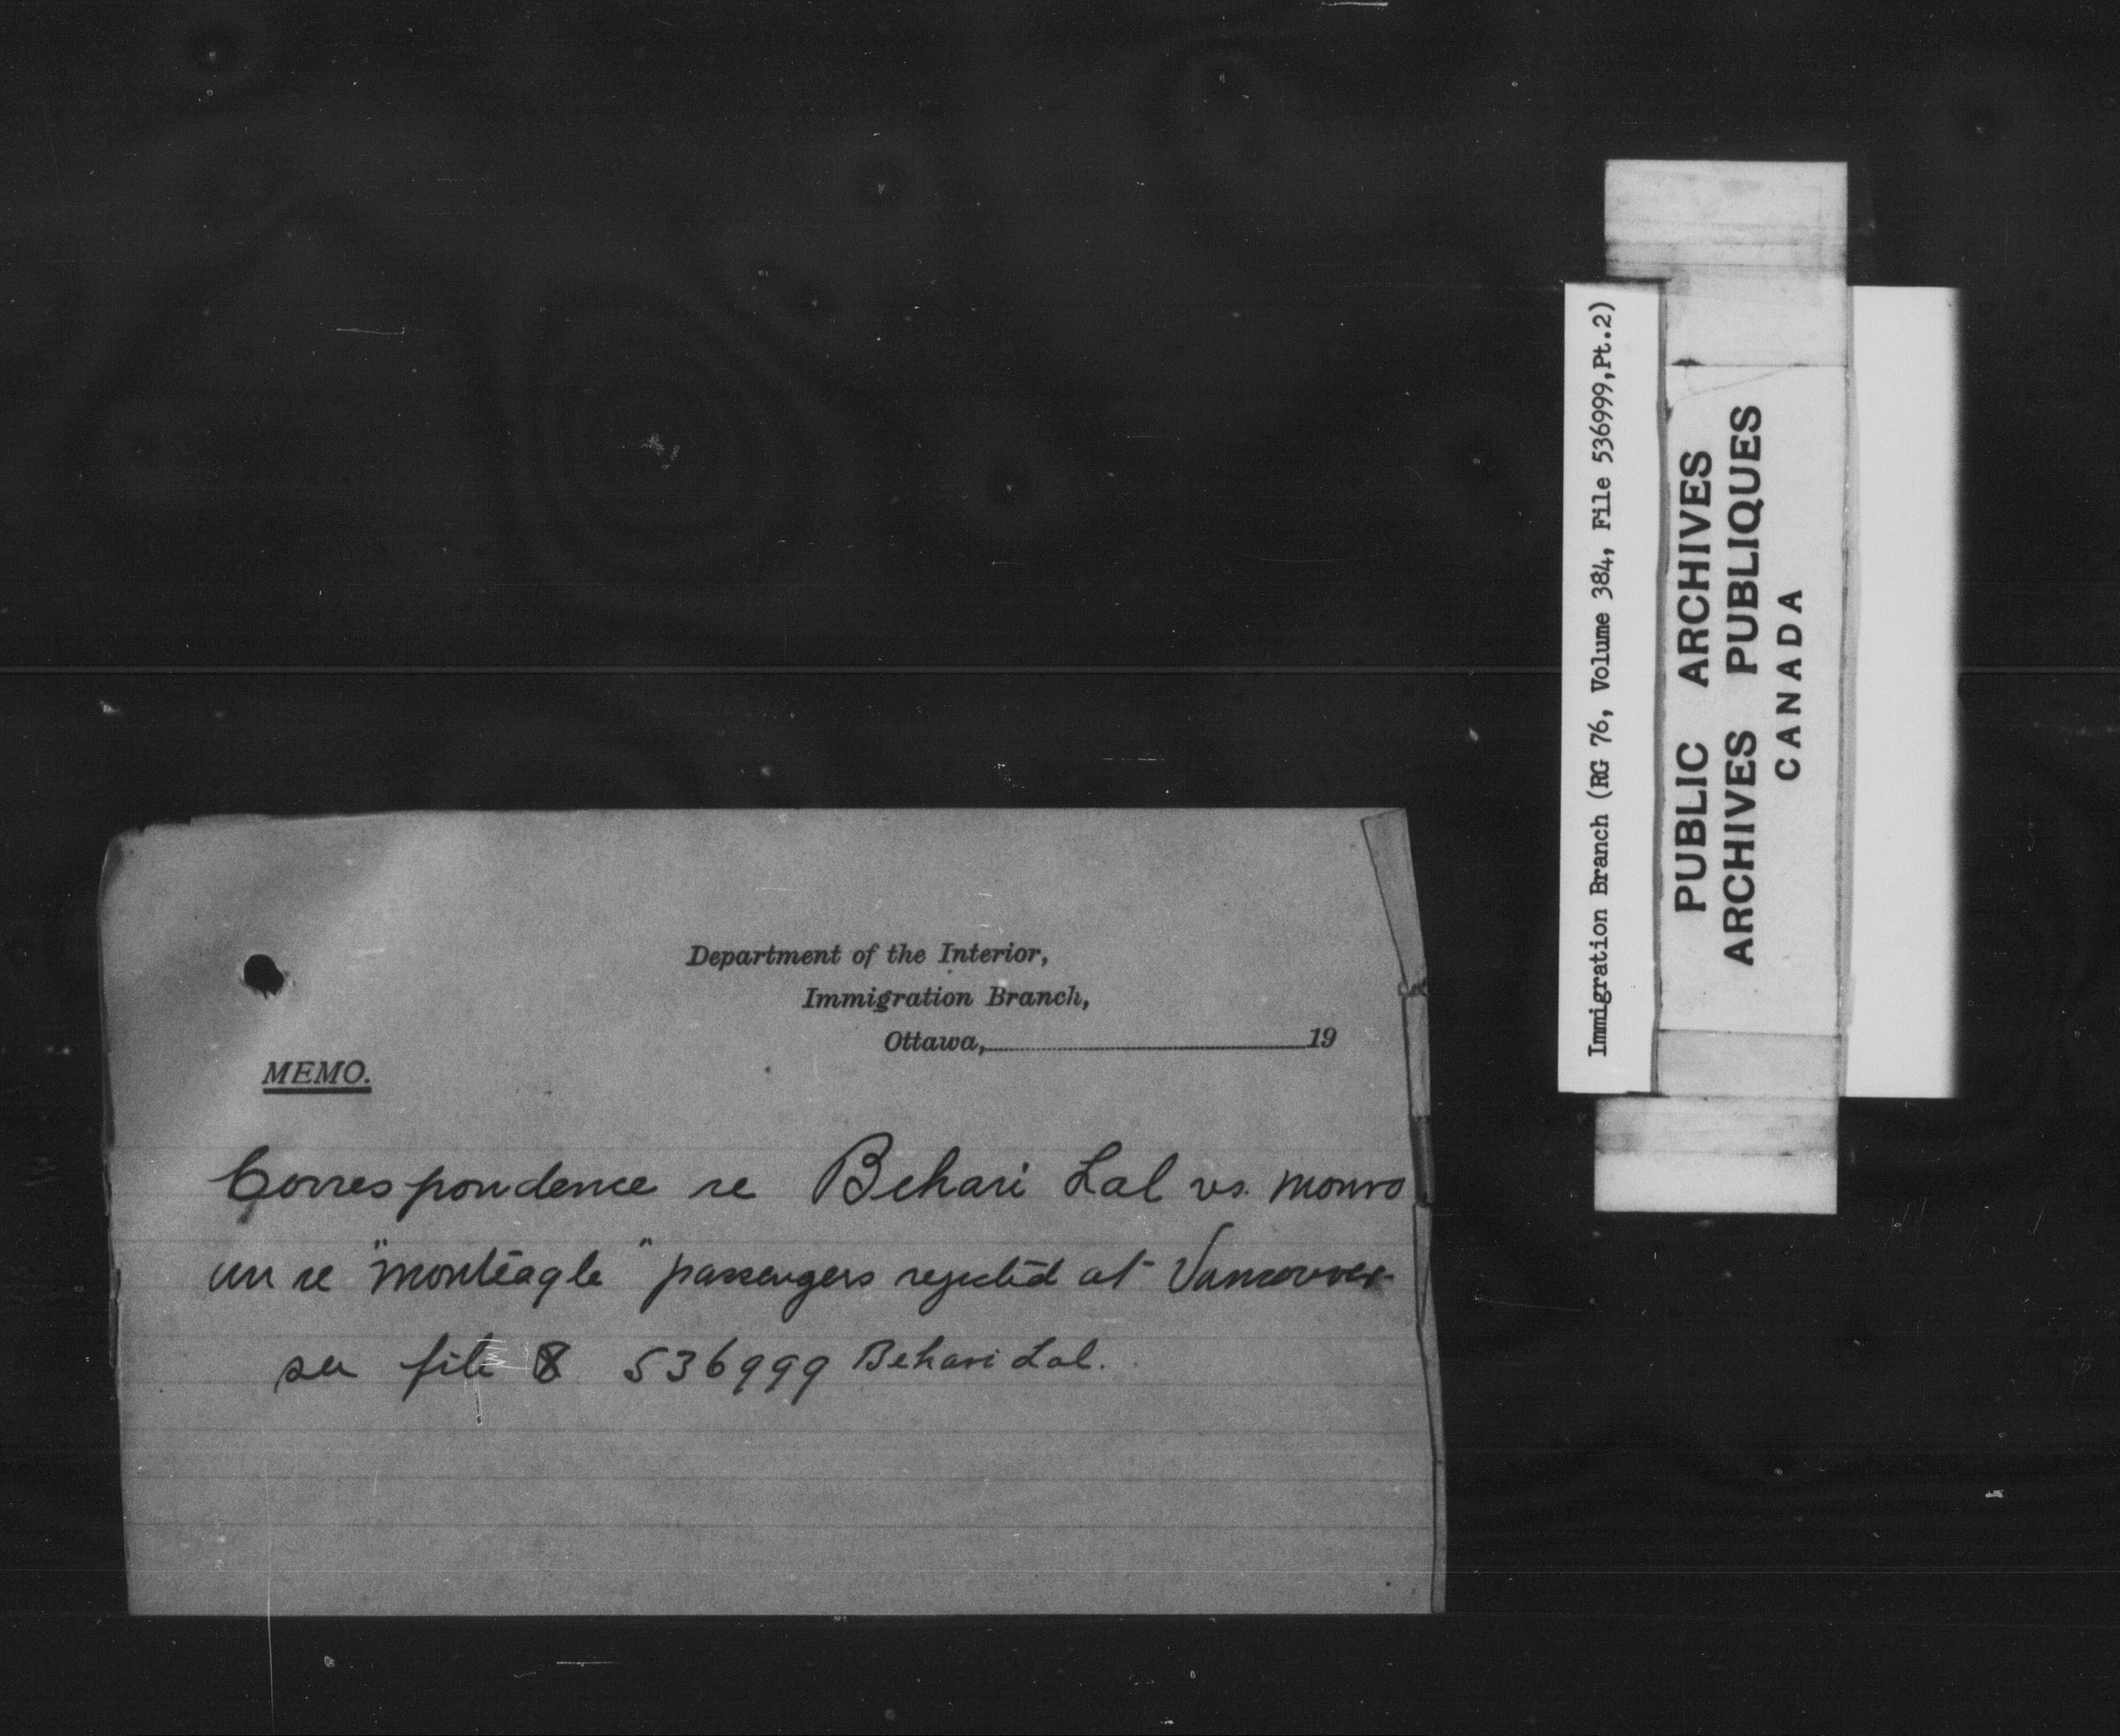 Department of the Interior,
Immigration Branch,
Ottawa, 19
MEMO.
Correspondence re Behari Lal vs. Monro
re "Monteagle" passengers rejected at Vancouver
see file 8 536999 Behari Lal.
Immigration Branch (RG 76, Volume 384, File 536999,Pt.2)
PUBLIC ARCHIVES
ARCHIVES PUBLIQUES
CANADA